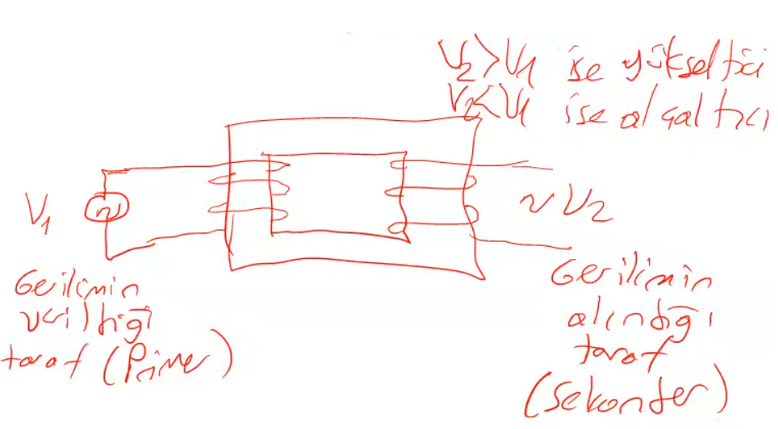 V₂>V₁ ise yükseltici
V₂<V₁ ise alçaltıcı
V₁
~V₂
Gerilimin
verildiği
taraf (Primer)
Gerilimin
alındığı
taraf
(Sekonder)